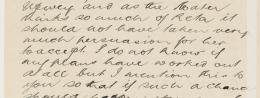 and as the Mater
thinks so much of Reta it
should not have taken very
much persuasion for her
to accept. I do not know if
any plans have worked out
at all but I mention this to
you so that if such a chance
should